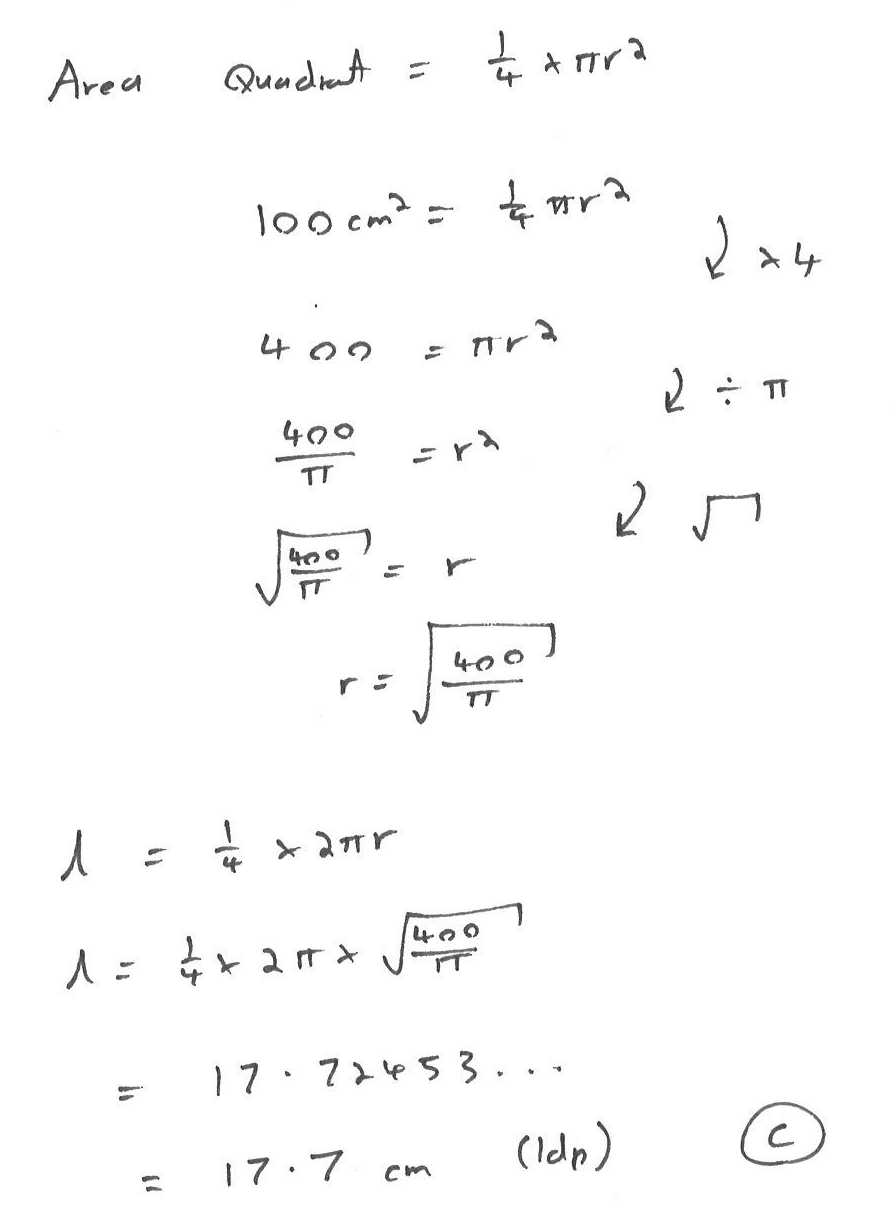 Area Quadrant = 1/4 × πr²
100 cm² = 1/4 πr²
↓ × 4
400 = πr²
↓ ÷ π
400/π = r²
↓ √
√(400/π) = r
r = √(400/π)
l = 1/4 × 2πr
l = 1/4 × 2π × √(400/π)
= 17.72453...
= 17.7 cm (1dp) C